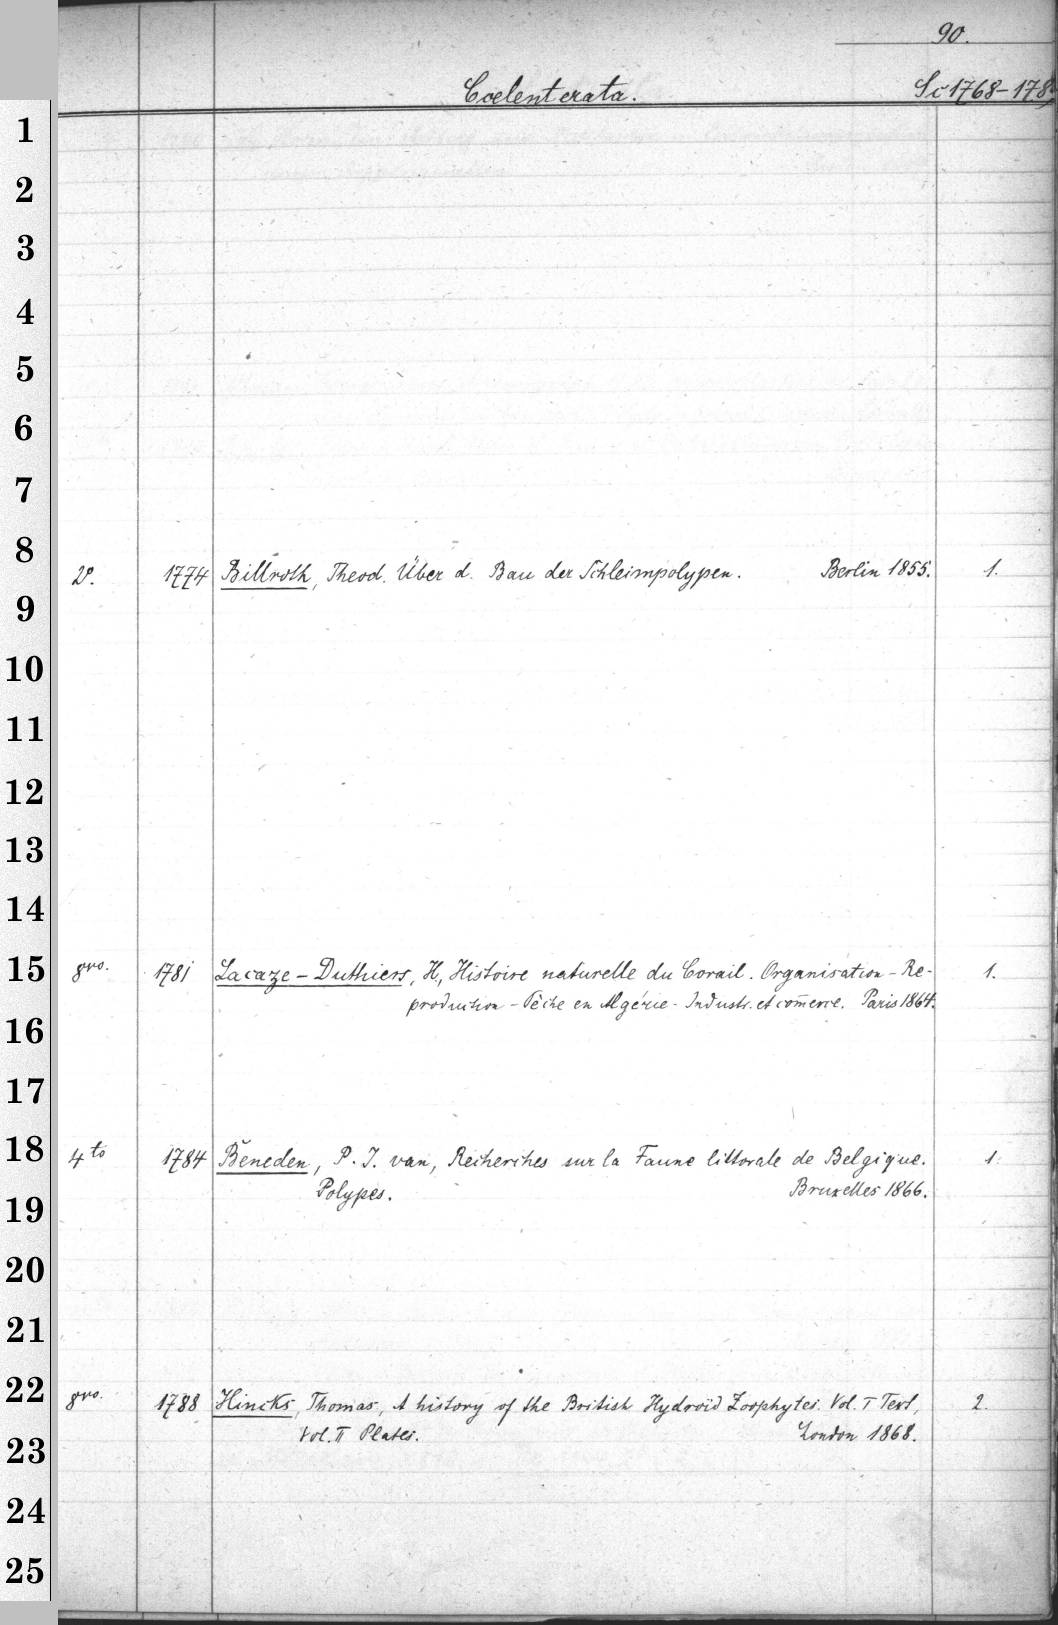 90.
Coelenterata. Sc 1768-178
1
2
3
4
5
6
7
8
2º. 1774 Billroth, Theod. Über d. Bau der Schleimpolypen. Berlin 1855. 1.
9
10
11
12
13
14
15
8vo. 1781 Lacaze-Duthiers, H., Histoire naturelle du Corail. Organisation-Re-
production-Pêche en Algérie-Industr. et com̄erce. Paris 1864. 1.
16
17
18
4to 1784 Beneden, P. J. van, Recherches sur la Faune littorale de Belgique. 1.
Polypes. Bruxelles 1866.
19
20
21
22
8vo. 1788 Hincks, Thomas, A history of the British Hydroid Zoophytes. Vol. I Text, 2.
Vol. II Plates. London 1868.
23
24
25